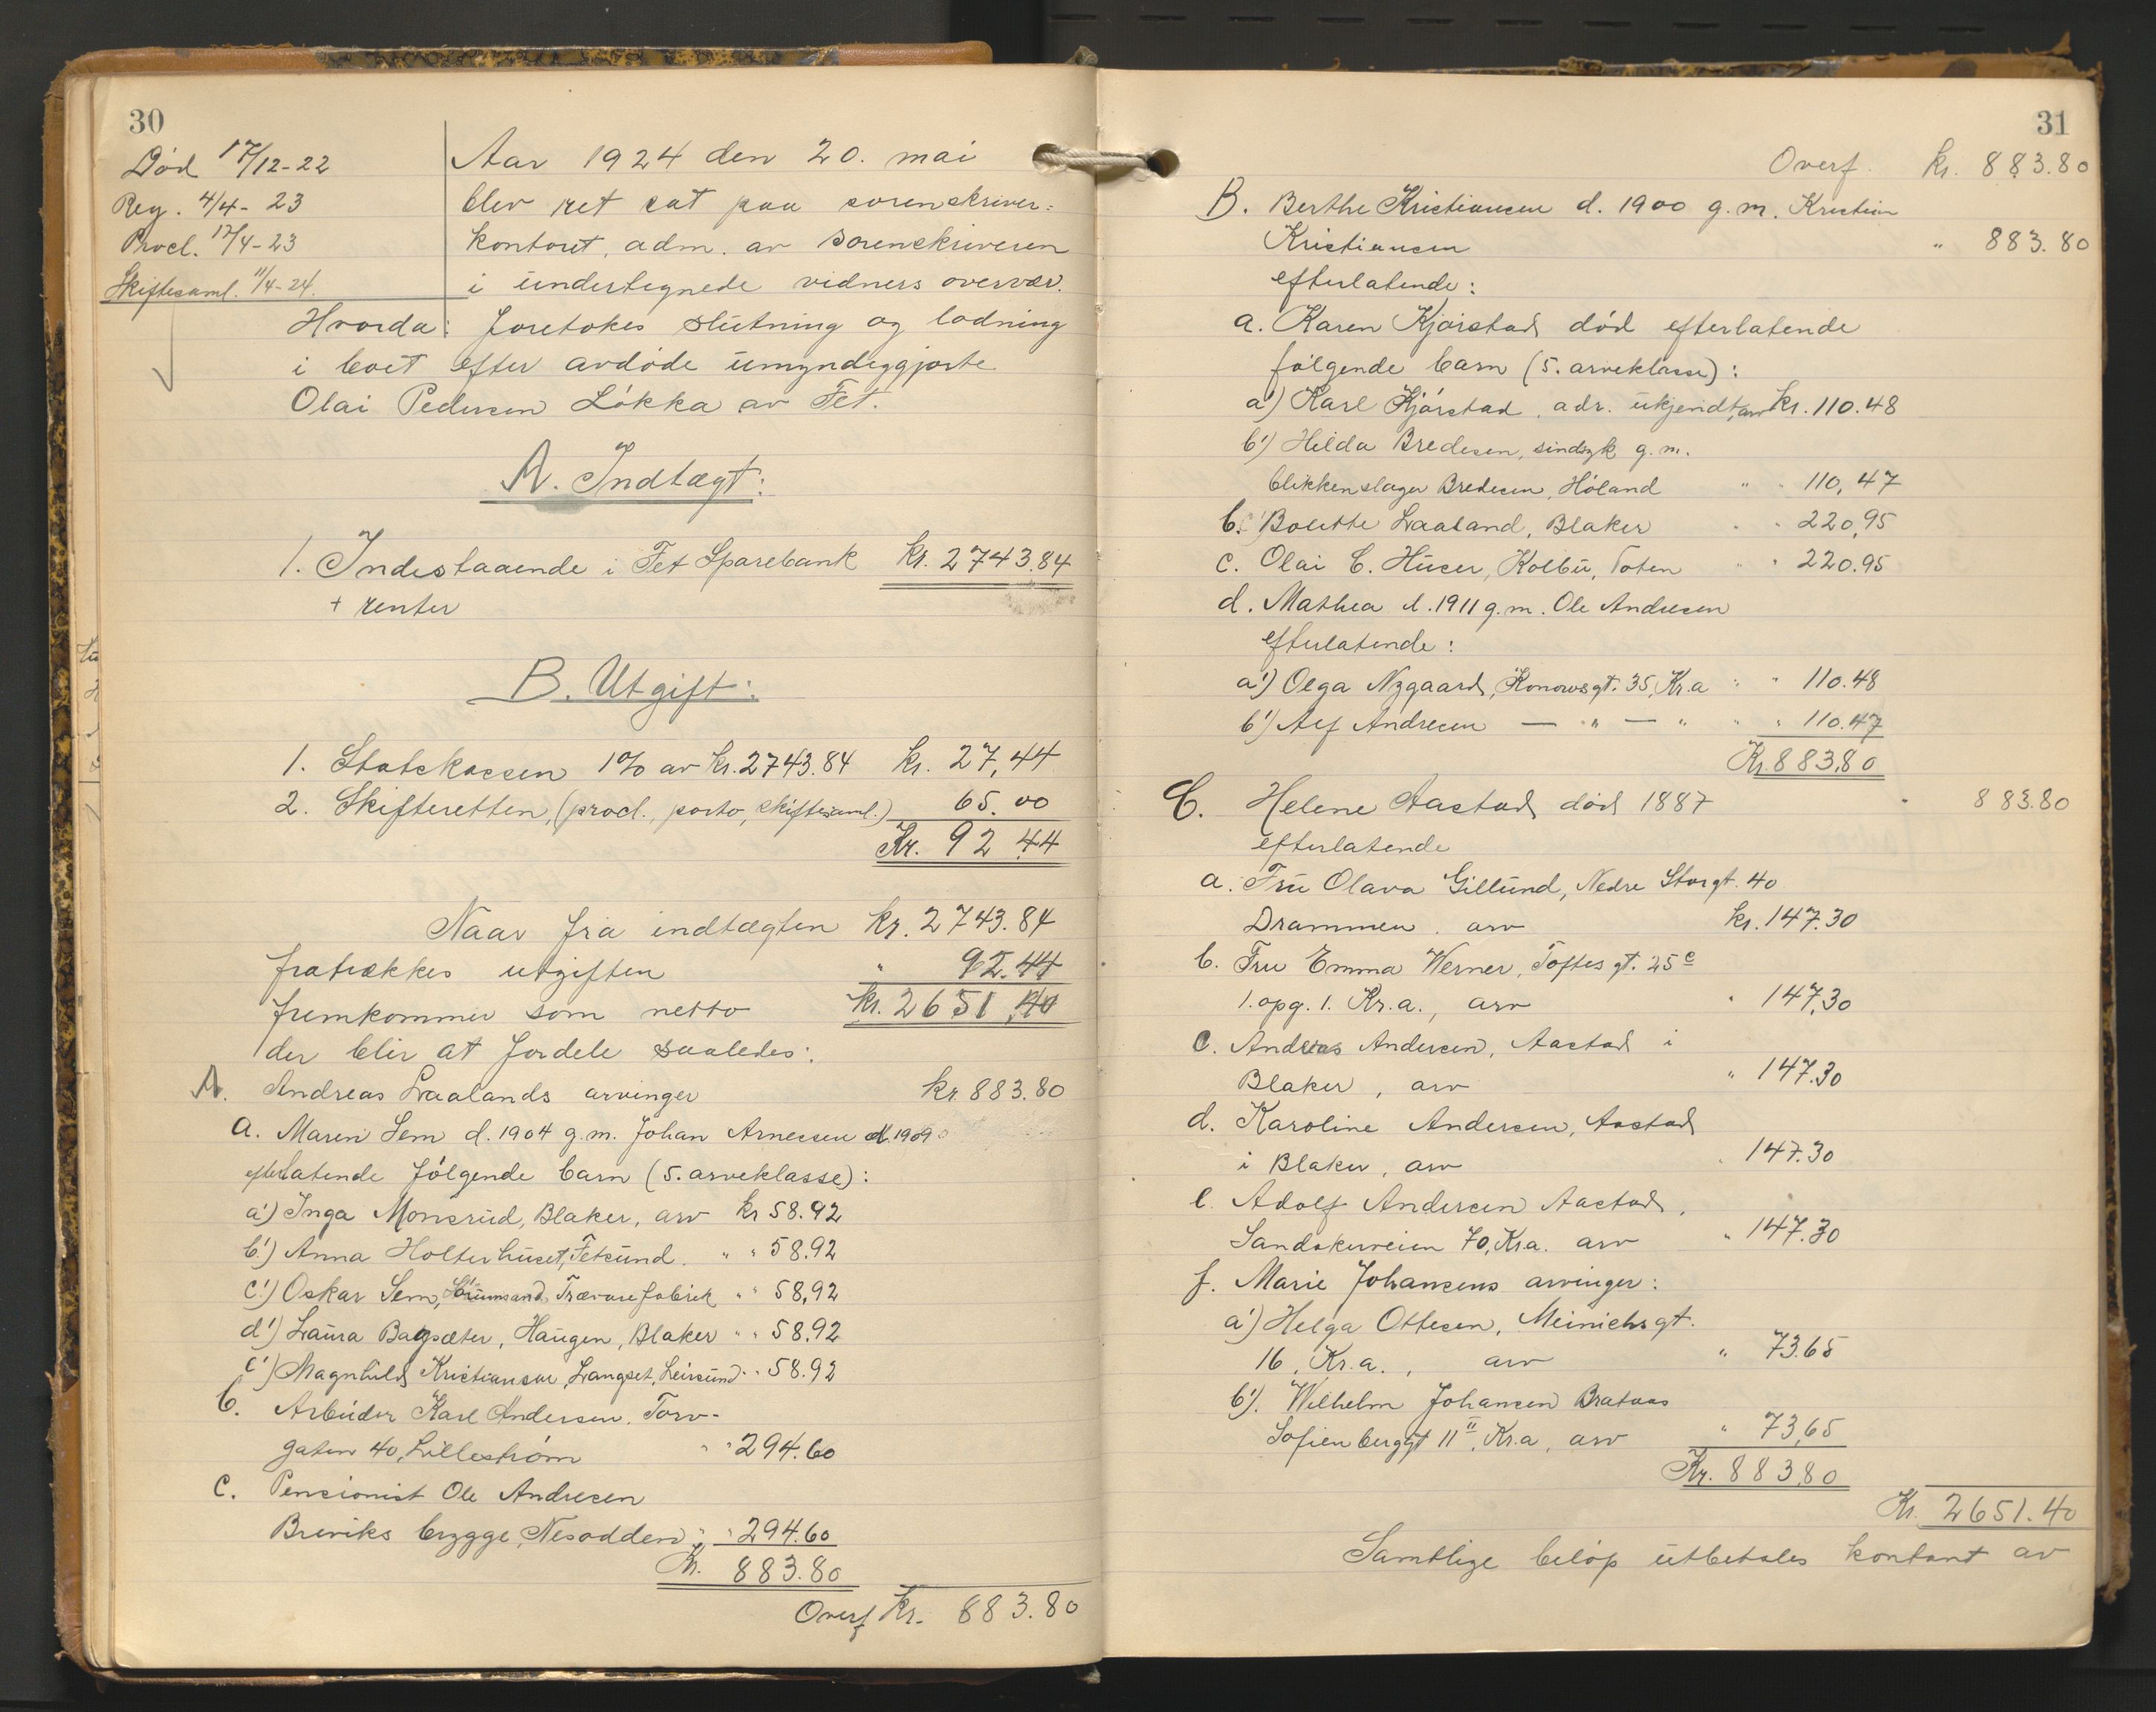 30
Død 17/12-22
Reg. 4/4-23
Procl. 17/4-23
Skiftesaml. 11/4-24.
Aar 1924 den 20. mai
blev ret sat paa sorenskriver=
kontoret, adm. av sorenskriveren
i undertegnede vidners overvær.
Hvorda: foretokes slutning og lodning
i boet efter avdøde umyndiggjorte
Olai Pedersen Løkka av Fet.
A. Indtægt:
1. Indestaaende i Fet Sparebank kr. 2743.84
+ renter
B. Utgift:
1. Statskassen 1% av kr. 2743.84 kr. 27,44
2. Skifteretten, (procl., porto, skiftesaml.) 65.00
Kr. 92.44
Naar fra indtægten kr. 2743.84
fratrækkes utgiften " 92.44
fremkommer som netto kr. 2651.40
der blir at fordele saaledes:
A. Andreas Laalands arvinger kr. 883.80
a. Maren Sem d. 1904 g.m. Johan Arnesen d. 1909
efterlatende følgende barn (5. arveklasse):
a') Inga Monsrud, Blaker, arv kr 58.92
b') Anna Holterhuset, Fetsund. " " 58.92
c') Oskar Sem, Sørumsand Trævarefabrik " " 58,92
d') Laura Bagsæter, Haugen, Blaker " " 58.92
e') Magnhild Kristiansen, Langset, Leirsund " " 58.92
b. Arbeider Karl Andersen, Torv-
gaten 40, Lillestrøm " " 294.60
c. Pensionist Ole Andresen
Breviks brygge, Nesodden " " 294.60
Kr. 883.80
Overf Kr. 883.80
31
Overf. kr. 883.80
B. Berthe Kristiansen d. 1900 g.m. Kristian
Kristiansen " 883.80
efterlatende:
a. Karen Kjørstad død efterlatende
følgende barn (5. arveklasse):
a') Karl Kjørstad, adr. ukjendt, arv kr. 110.48
b') Hilda Bredesen, sindsyk g.m.
blikkenslager Bredesen, Høland " " 110,47
b. Bolette Laaland, Blaker " " 220,95
c. Olai C. Huser, Kolbu, Toten " " 220.95
d. Mathea d. 1911 g.m. Ole Andresen
efterlatende:
a') Olga Nygaard, Konowsgt. 35, Kr.a " " 110.48
b') Alf Andresen — " — " " " 110.47
Kr. 883,80
C. Helene Aastad død 1887 " 883.80
efterlatende
a. Fru Olava Gillund, Nedre Storgt. 40
Drammen. arv kr. 147.30
b. Fru Emma Werner, Toftesgt. 25c
1. opg. 1. Kr.a., arv " 147,30
c. Andreas Andersen, Aastad i
Blaker, arv " 147.30
d. Karoline Andersen, Aastad
i Blaker, arv " 147.30
e. Adolf Andersen Aastad,
Sandakerveien 70, Kr.a. arv " 147.30
f. Marie Johansens arvinger:
a') Helga Ottesen, Meinichsgt.
16, Kr.a., arv " 73.65
b'). Wilhelm Johansen Brataas
Sofienberggt 11 II, Kr.a, arv " 73,65
Kr. 883,80
Kr. 2651.40
Samtlige beløp utbetales kontant av